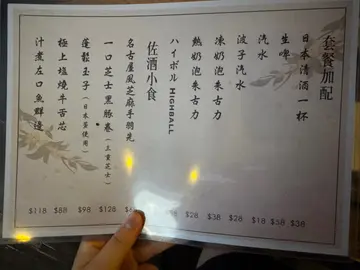 套餐加配
日本清酒一杯 $38
生啤 $58
汽水 $18
波子汽水 $28
凍奶泡朱古力 $38
熱奶泡朱古力 $28
ハイボル HIGHBALL
佐酒小食
名古屋風芝麻手羽先
一口芝士黑豚卷(三重芝士) $128
蓬鬆玉子(日本蛋使用) $98
極上塩燒牛舌芯 $88
汁煮左口魚鮮邊 $118